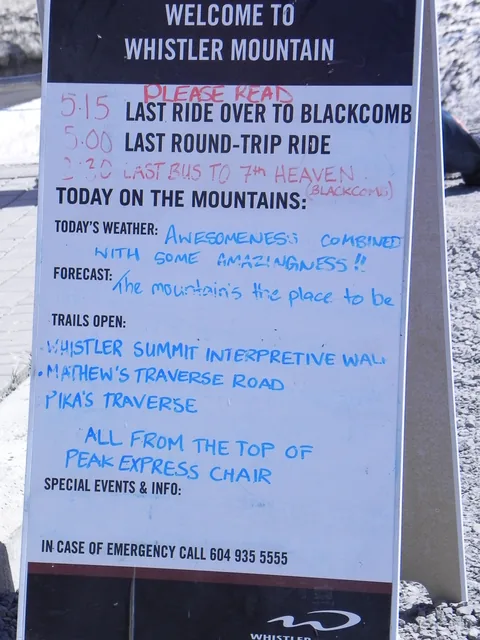 WELCOME TO
WHISTLER MOUNTAIN
PLEASE READ
5:15 LAST RIDE OVER TO BLACKCOMB
5:00 LAST ROUND-TRIP RIDE
LAST BUS TO 7th HEAVEN
(BLACKCOMB)
TODAY ON THE MOUNTAINS:
TODAY'S WEATHER: AWESOMENESS COMBINED
WITH SOME AMAZINGNESS!!
FORECAST: The mountain's the place to be
TRAILS OPEN:
•WHISTLER SUMMIT INTERPRETIVE WALK
•MATHEW'S TRAVERSE ROAD
PIKA'S TRAVERSE
ALL FROM THE TOP OF
PEAK EXPRESS CHAIR
SPECIAL EVENTS & INFO:
IN CASE OF EMERGENCY CALL 604 935 5555
WHISTLER